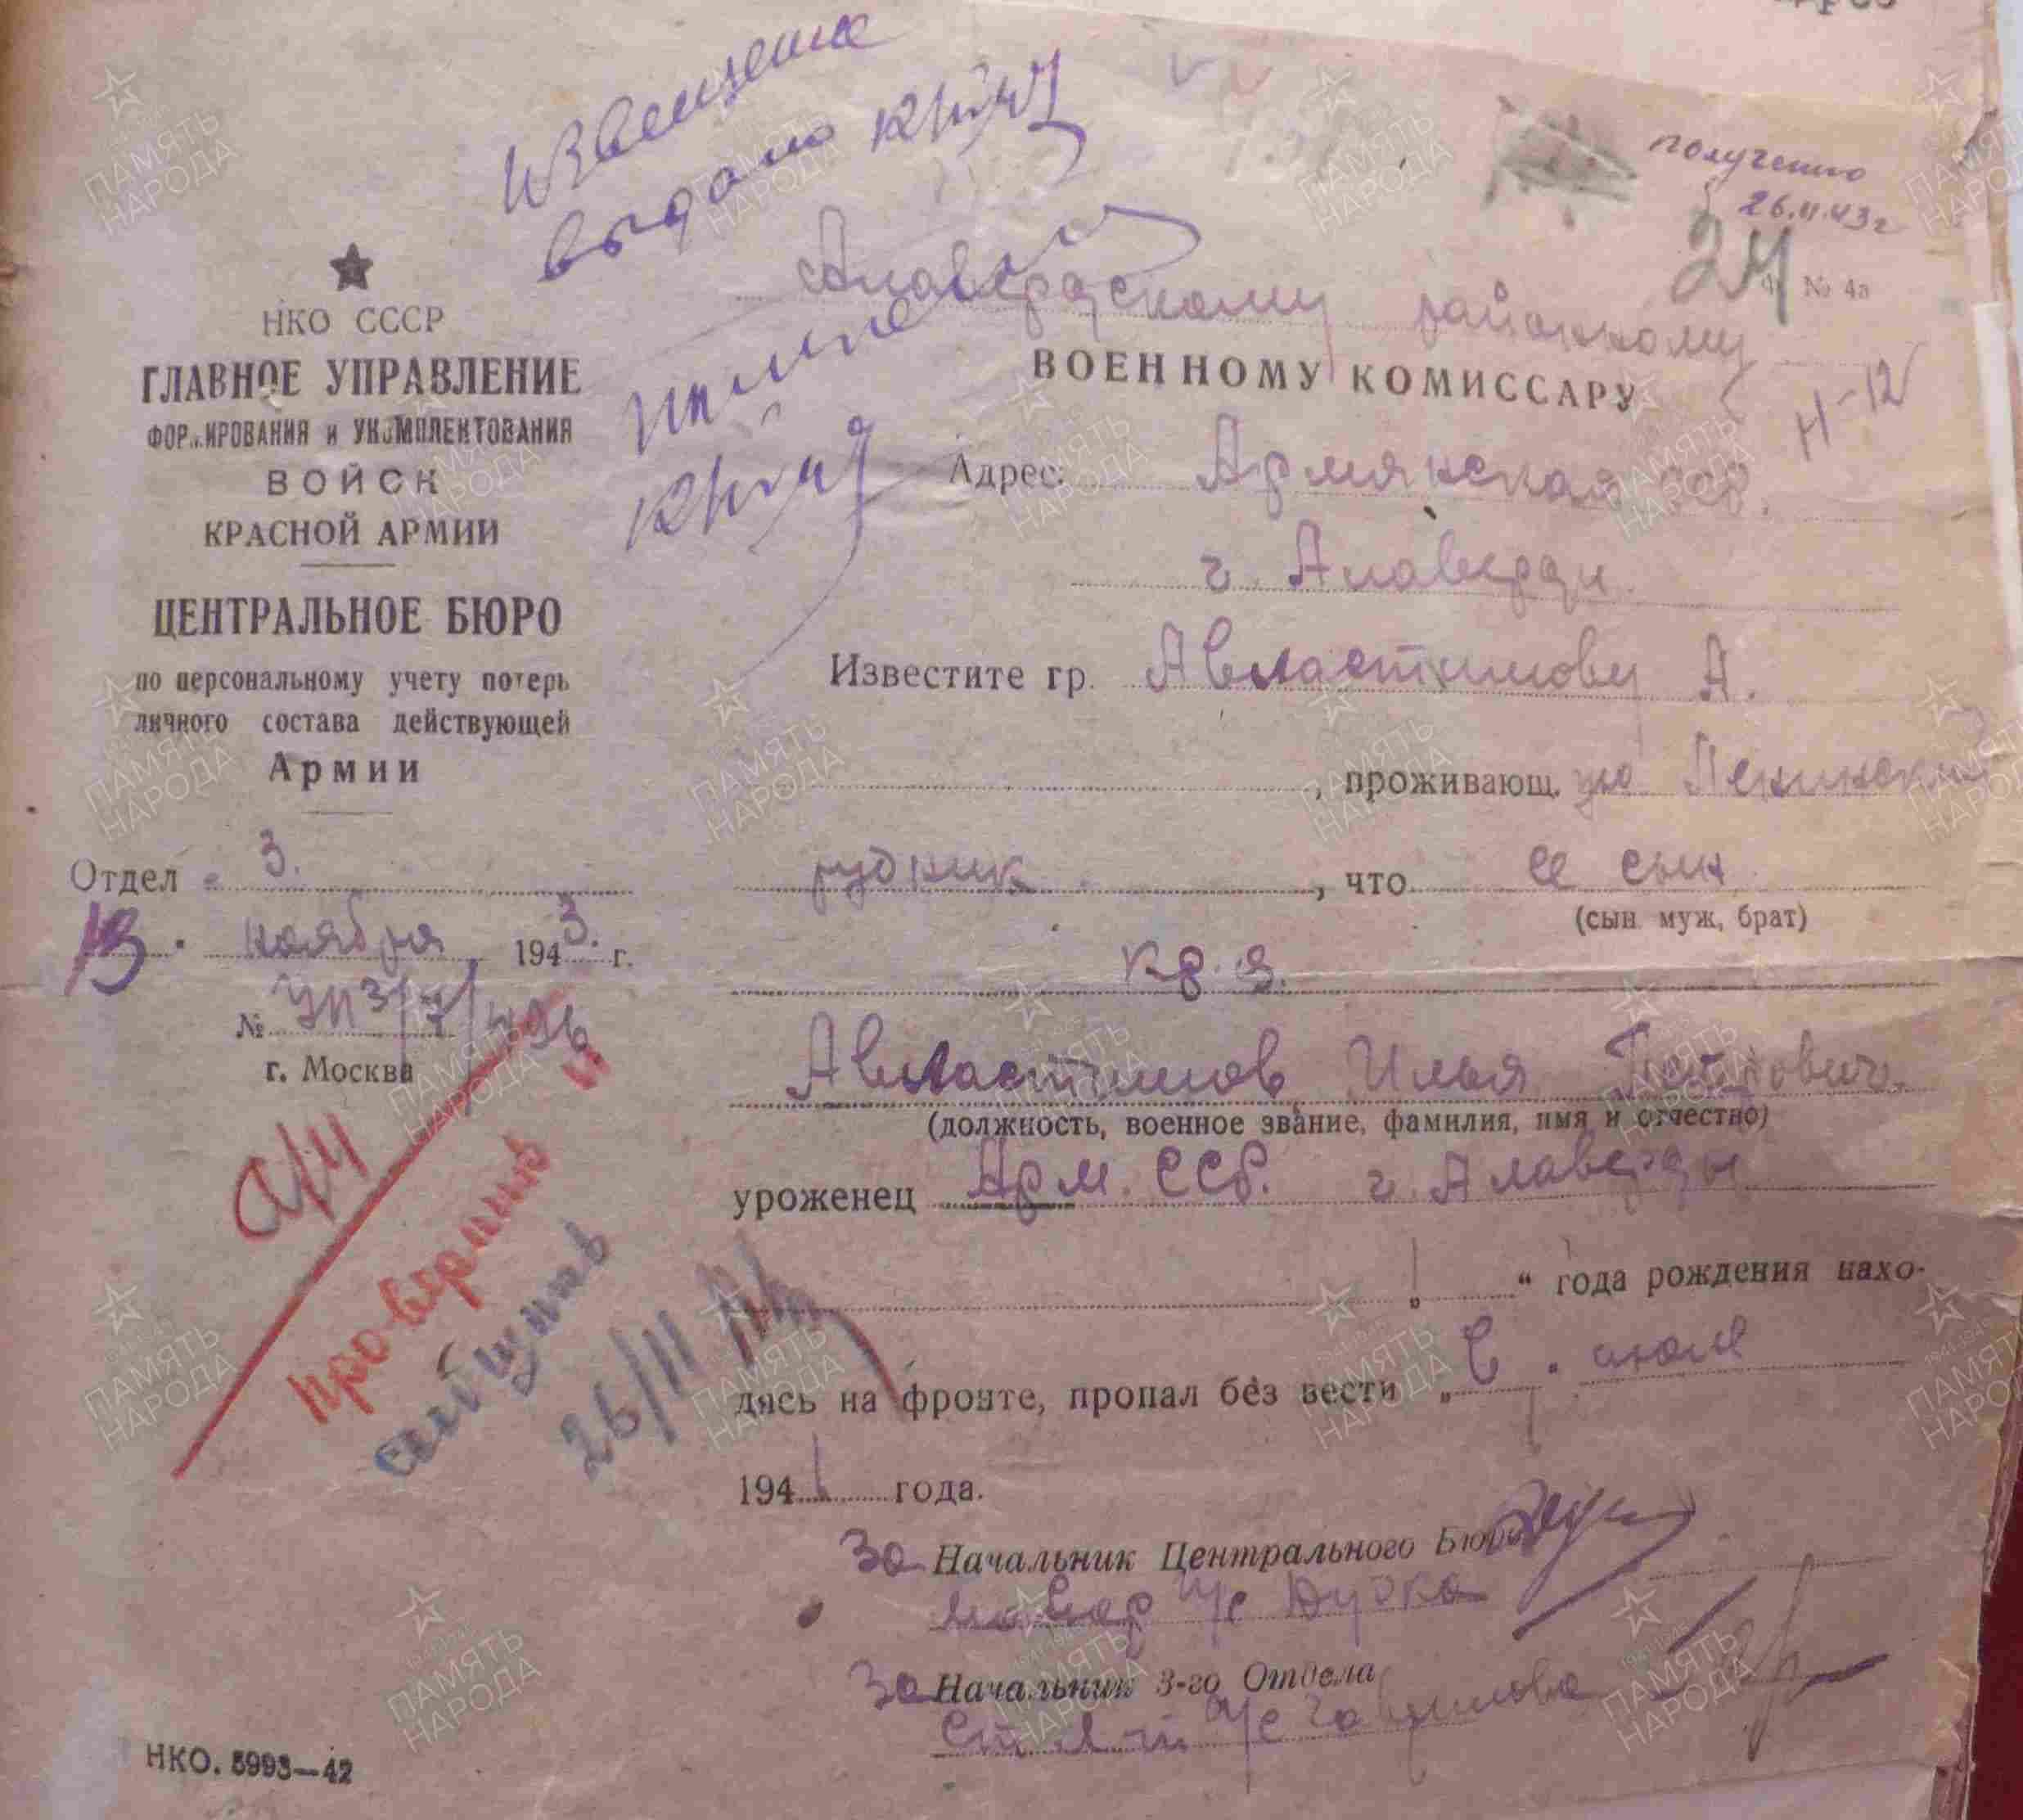 Извещение
выдано
получено
26.11.43г
24
№ 4а
НКО СССР
ГЛАВНОЕ УПРАВЛЕНИЕ
ФОРМИРОВАНИЯ и УКОМПЛЕКТОВАНИЯ
ВОЙСК
КРАСНОЙ АРМИИ
ЦЕНТРАЛЬНОЕ БЮРО
по персональному учету потерь
личного состава действующей
Армии
Отдел 3.
13 ноября 1943 г.
№
г. Москва
Алавердскому районному
ВОЕННОМУ КОМИССАРУ
Н-12
Адрес: Армянская ССР.
г. Алаверди
Известите гр. Авластимову А.
, проживающ. ую Ленинский
рудник , что ее сын
(сын муж, брат)
кр-ц.
Авластимов Илья Петрович.
(должность, военное звание, фамилия, имя и отчество)
уроженец Арм. ССР. г. Алаверди
„ “ года рождения нахо-
дясь на фронте, пропал без вести „ “ июля
1941 года.
За Начальник Центрального Бюро
майор и/с
За Начальник 3-го Отдела
Ст. л-т и/с Гаврилова
26/11
НКО. 5993—42
ПАМЯТЬ
НАРОДА